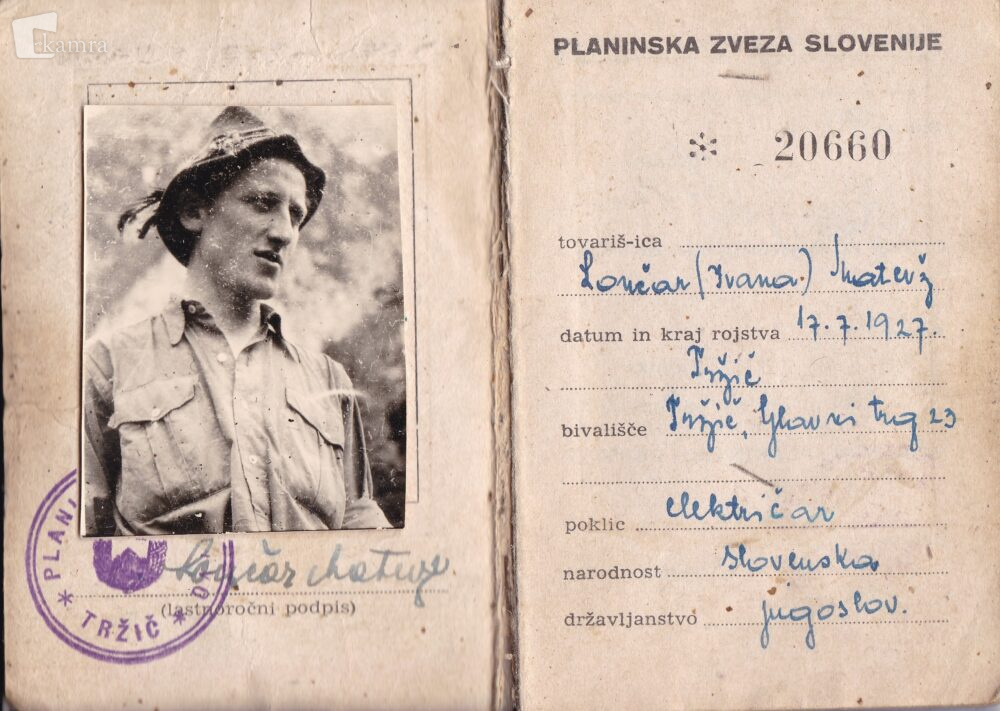 kamra
PLANI
DR
* TRŽIČ *
Lončar Matevž
(lastnoročni podpis)
PLANINSKA ZVEZA SLOVENIJE
* 20660
tovariš-ica
Lončar (Ivana) Matevž
datum in kraj rojstva 17.7.1927.
Tržič
bivališče Tržič, Glavni trg 23
poklic električar
narodnost slovenska
državljanstvo jugoslov.